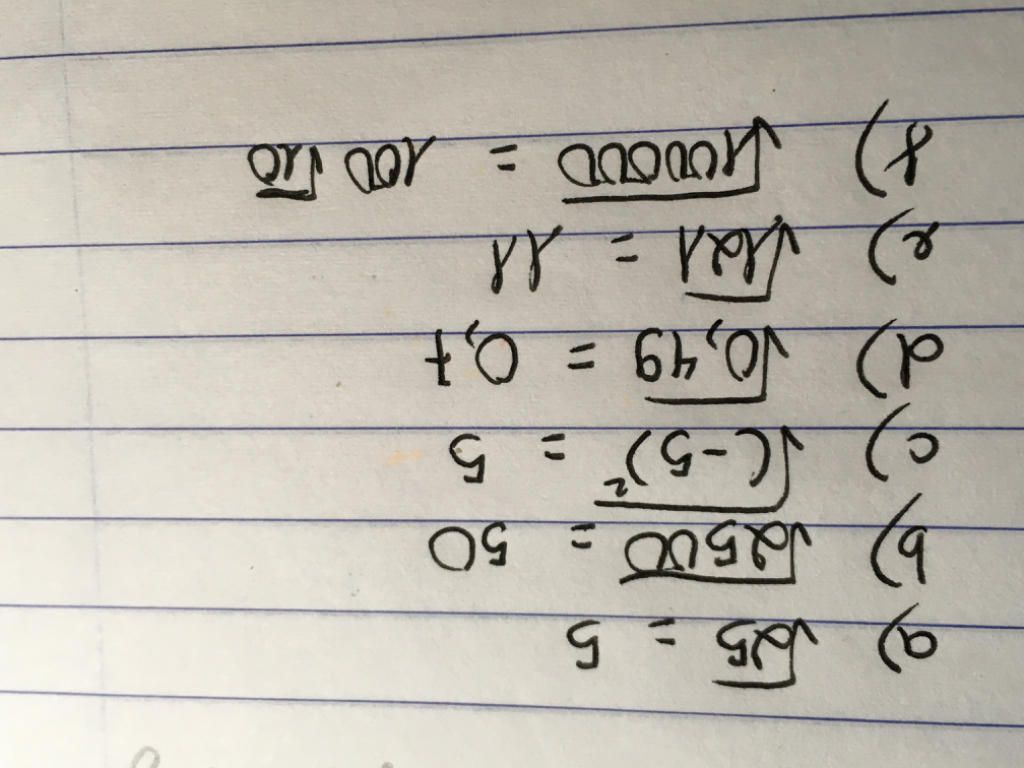 a) √25 = 5
b) √2500 = 50
c) √(-5)² = 5
d) √0,49 = 0,7
e) √121 = 11
f) √100000 = 100 √10